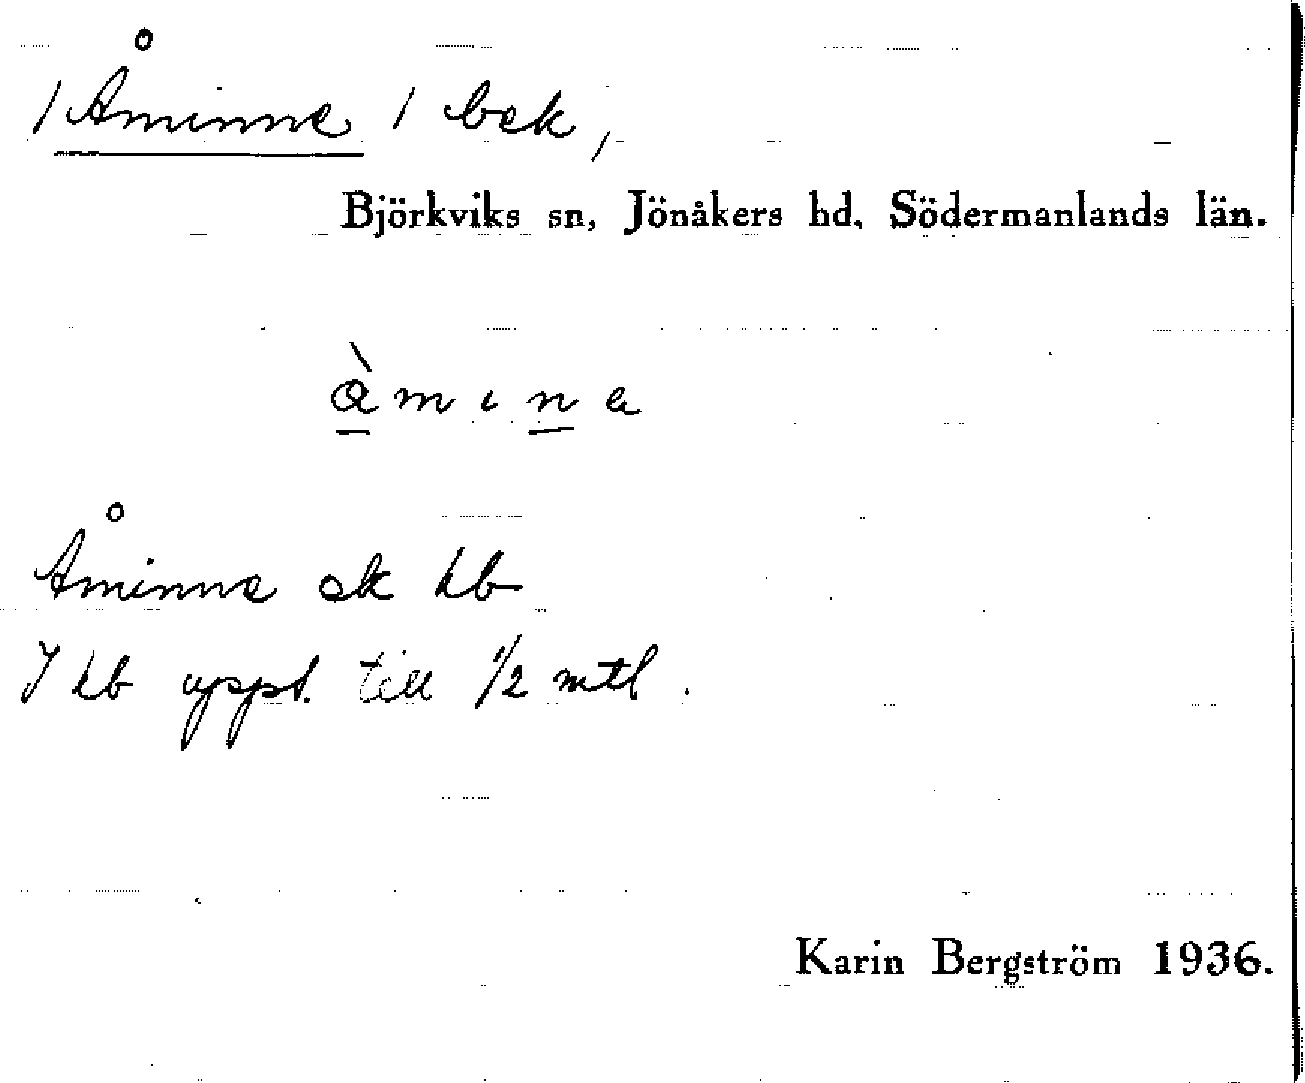 / Åminne / bek,
Björkviks sn, Jönåkers hd, Södermanlands län.
àmıne
Åminne ek hb
I hb uppt. till 1/2 mtl.
Karin Bergström 1936.